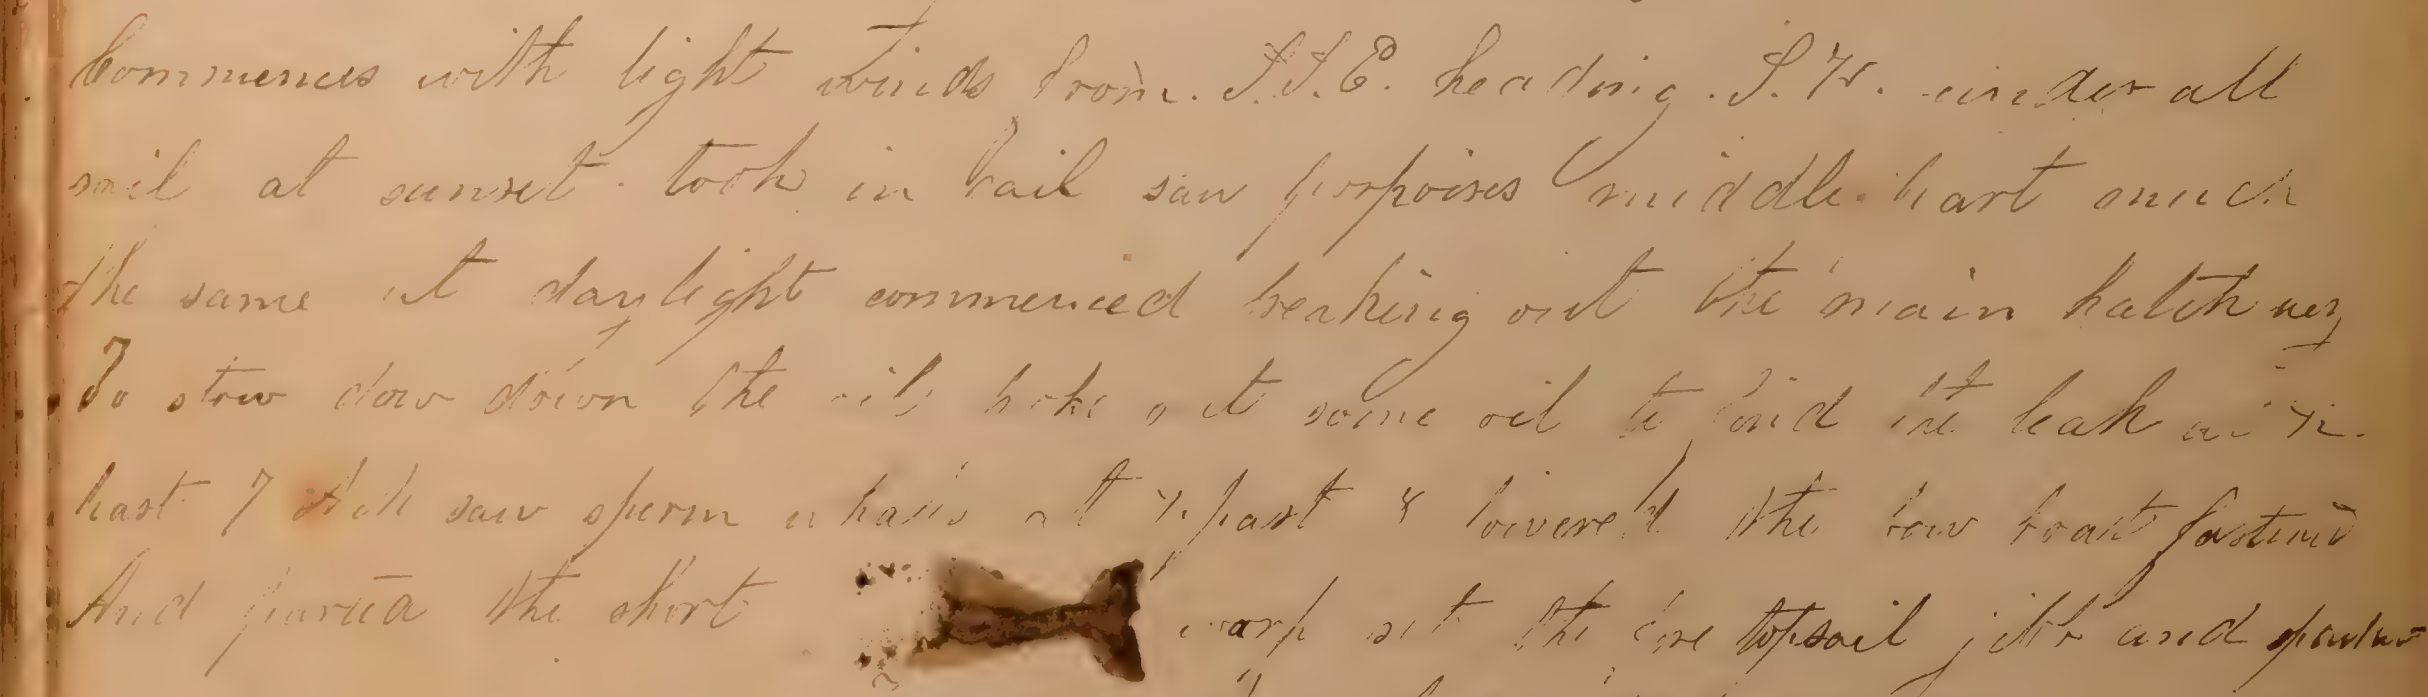 Commences with light winds from. S.S.E. heading. S.W. under all
sail at sunset. took in sail saw porpoises middle part much
the same at daylight commenced breaking out the main hatch way
To stow dow down the oil broke out some oil to find the leak at ½
past 7 Ock saw sperm whales at ½ past 8 lowered the bow boat fastened
And parted the short warp set the fore topsail jibb and spanker